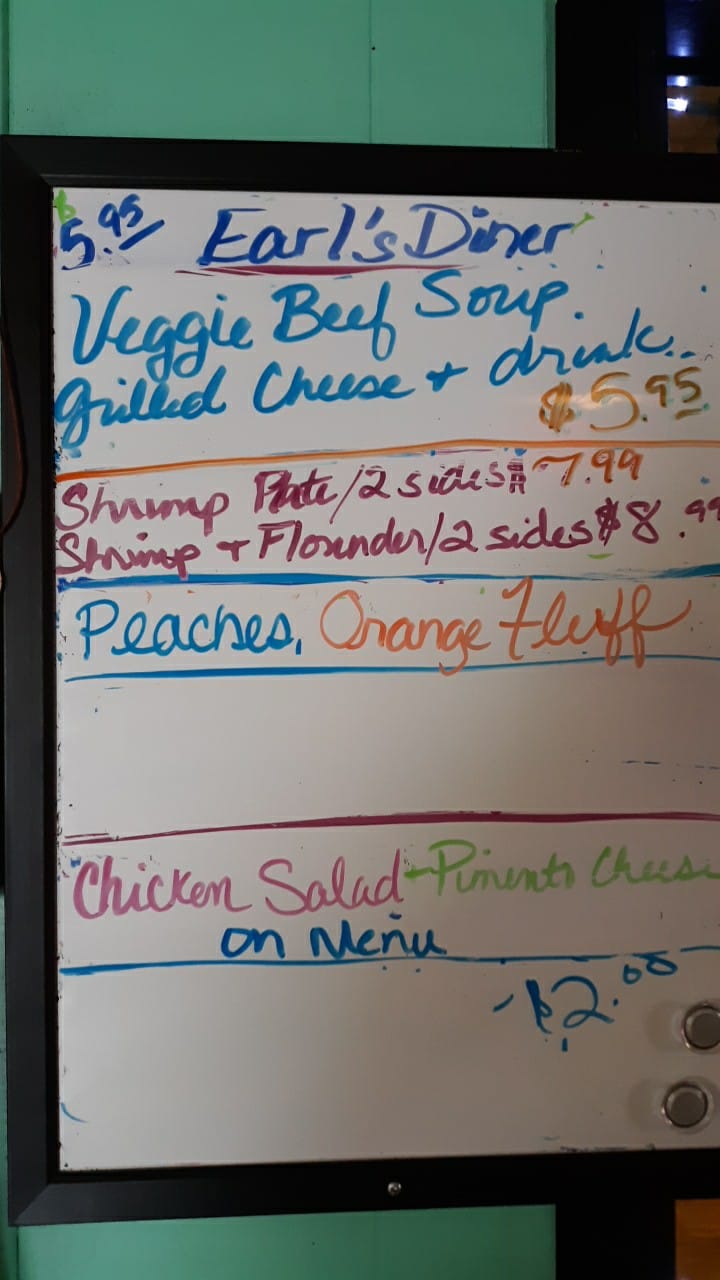 $5.95 Earl's Diner
Veggie Beef Soup.
Grilled Cheese + drink..
$5.95
Shrimp Plate/2 sides $7.99
Shrimp + Flounder/2 sides $8.99
Peaches, Orange Fluff
Chicken Salad - Pimento Cheese
on Menu
- $2.00